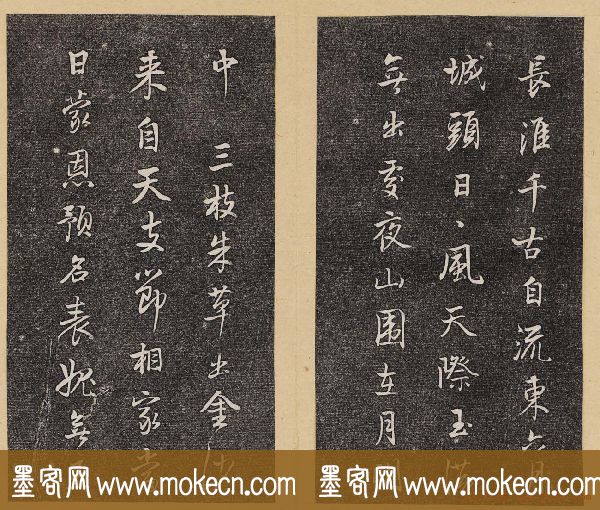 長淮千古自流東六月
城頭日、風天際玉
無出處夜山围在月
中 三枝朱草出金沙
来自天支節相家當
日蒙恩預名表愧無
墨客网 www.mokecn.com
墨客网 www.mokecn.com